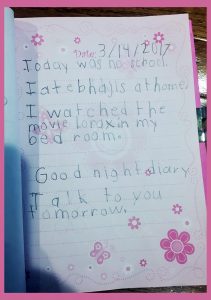 Date: 3/14/2017
Today was no school.
I ate bhajis at home.
I watched the
movie Lorax in my
bed room.
Good night diary
Talk to you
tomorrow.